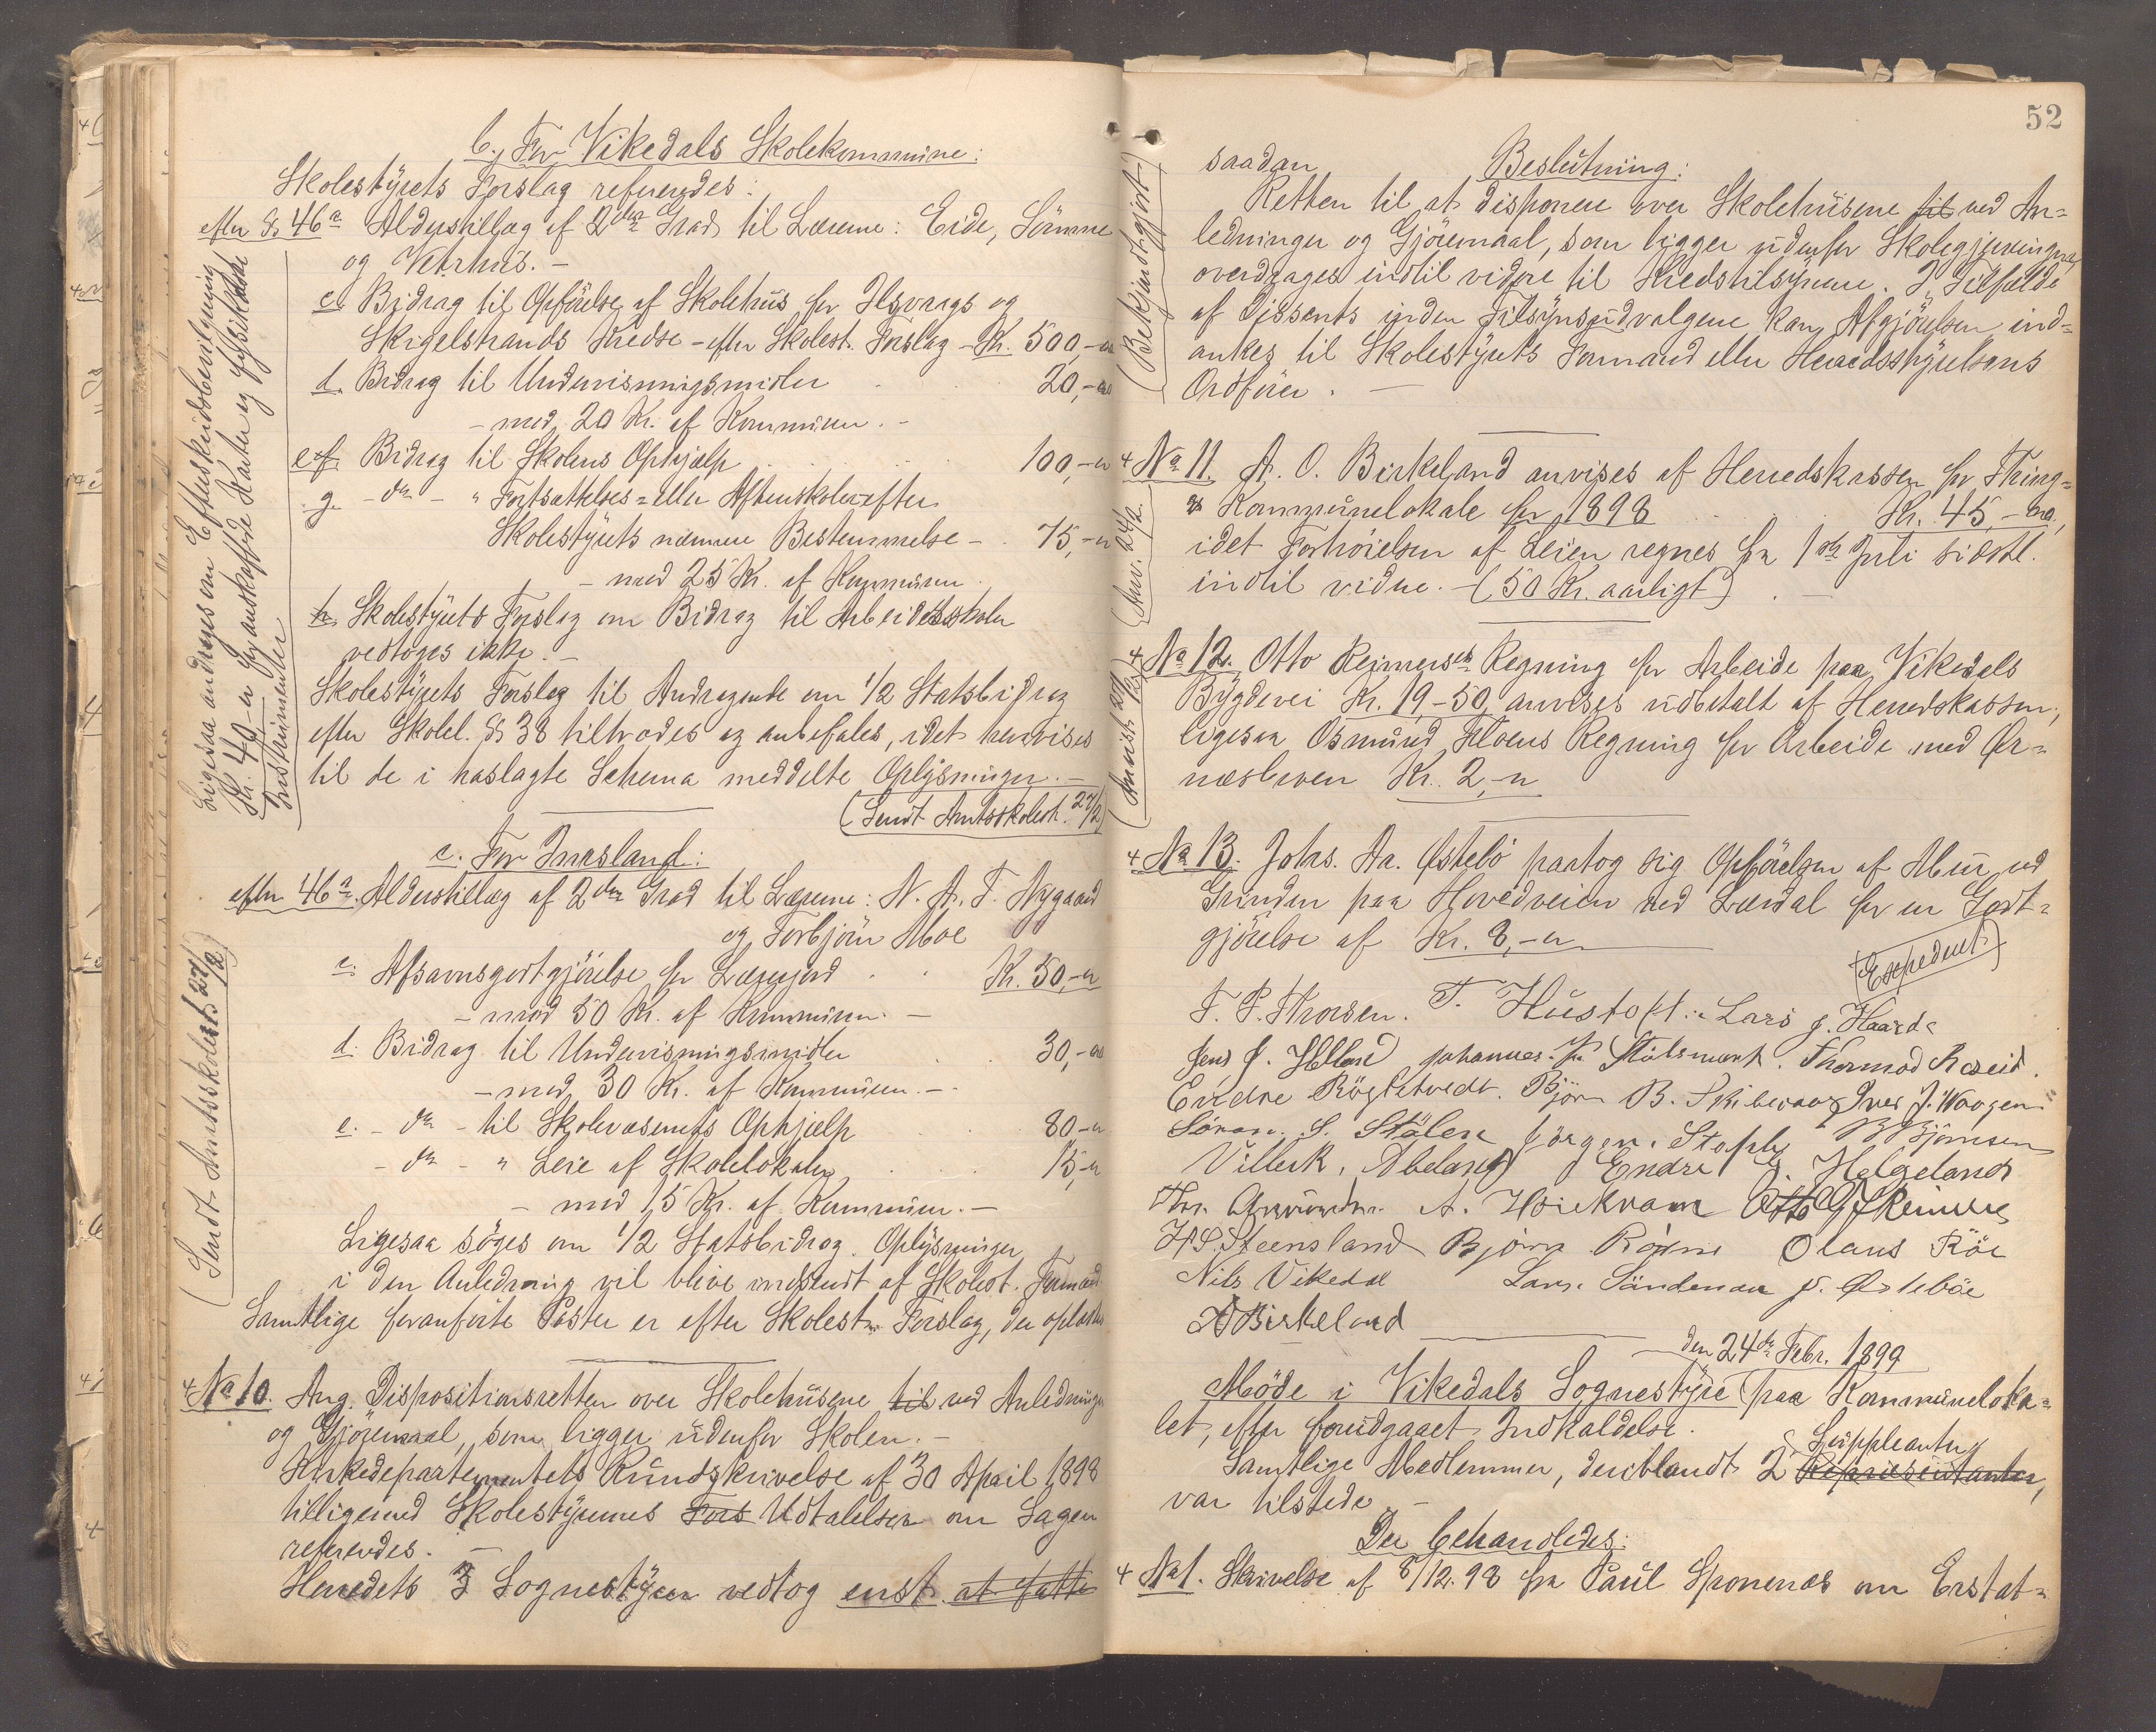 b. For Vikedals Skolekommune:
Skolestyrets Forslag refereredes:
efter § 46a Alderstillæg af 2den Grad til Lærerne: Eide, Sömme
og Vetrhus. –
c. Bidrag til Opförelse af Skolehus for Ilsvaags og
Skigelstrands Kredse – efter Skolest. Forslag – Kr. 500,–
d. Bidrag til Undervisningsmidler . . . 20,–
– mod 20 Kr. af Kommunen. –
e & f. Bidrag til Skolens Ophjælp . . . 100,–
g. – do – " Fortsættelses- eller Aftenskoler efter
Skolestyrets nærmere Bestemmelse – . 75,–
– mod 25 Kr. af Kommunen.
h. Skolestyrets Forslag om Bidrag til Arbeidsskoler
vedtoges ikke. –
Skolestyrets Forslag til Andragende om 1/2 Statsbidrag
efter Skolel. § 38 tiltrædes og anbefales, idet henvises
til de i haslagte Schema meddelte Oplysninger. –
(Sendt Amtsskolest. 27/2)
Ligesaa andrages om Efterskudsbevilgning
Kr. 40 for anskaffede Karter og fysikalske
Instrumenter
c. For Imsland:
efter 46a. Alderstillæg af 2den Grad til Lærerne: N. A. T. Nygaard
og Torbjörn Moe
c. Afsavnsgodtgjörelse for Lærerjord . . Kr. 50,–
– mod 50 Kr. af Kommunen. –
d. Bidrag til Undervisningsmidler . . 30,–
– mod 30 Kr. af Kommunen. –
e. – do – til Skolevæsenets Ophjælp . . 80–
– do – " Leie af Skolelokaler . . . 15,–
– mod 15 Kr. af Kommunen. –
Ligesaa söges om 1/2 Statsbidrag. Oplysninger
i den Anledning vil blive indsendt af Skolest. Formand.
Samtlige foranförte Poster er efter Skolest. Forslag, der oplæstes
(Sendt Amtsskolest. 27/2)
No 10. Ang. Dispositionsretten over Skolehusene til ved Anledninger
og Gjöremaal, som ligger udenfor Skolen. –
Kirkedepartementets Rundskrivelse af 30 April 1898
tilligemed Skolestyrernes Fors Udtalelser om Sagen
refereredes. –
Herredets 3 Sognestyrer vedtog enst. at fatte
52
saadan Beslutning:
Retten til at disponere over Skolehusene til ved An-
ledninger og Gjöremaal, som ligger udenfor Skolegjerningen,
overdrages indtil videre til Kredstilsynene. I Tilfælde
af Dissents inden Tilsynsudvalgene kan Afgjörelsen ind-
ankes til Skolestyrets Formand eller Herredsstyrelsens
Ordförer. –
(Bekjendtgjort)
No 11. A. O. Birkeland anvises af Herredskassen for Thing-
& Kommunelokale for 1898 . . . Kr. 45,–
idet Forhöielsen af Leien regnes fra 1ste Juli sidstl.
indtil videre. – (50 Kr. aarligt) . –
(Anv. 24/2.)
No 12. Otto Reimersen Regning for Arbeide paa Vikedals
Bygdevei Kr. 19,–50, anvises udbetalt af Herredskassen,
ligesaa Osmund Floens Regning for Arbeide med Ör-
næsleven Kr. 2,–
(Anvist 24/2)
No 13. Johs. Aa. Östebö paatog sig Opförelsen af Mur ved
Grinden paa Hovedveien ved Lændal for en Godt-
gjörelse af Kr. 8,–
(Expederet)
T. P. Thorsen. T. Hustoft. Lars J. Haarde
Jens J. Helland Johannes Stölsmark. Thormod Raseid.
Endre Rögletvedt. Björn B. Skibevaag Iver J. Waagen
Sören. S. Stölen Jörgen. Stople B Björnsen
Villiek. Abeland Endre J. Helgeland
Thr. Amundsen. A. Höiekvam Otto G Reimers
H S. Steensland Björn Rörne Olaus Röe
Nils Vikedal Lars. Söndenaa J. Östeböe
A Birkeland
den 24de Febr. 1899
Möde i Vikedals Sognestyre (paa Kommuneloka-
let, efter forudgaaet Indkaldelse.
Samtlige Medlemmer, deriblandt 2 Suppleanter Repræsentanter,
var tilstede. –
Der behandledes:
No 1. Skrivelse af 8/12. 98 fra Paul Sponenæs om Erstat-